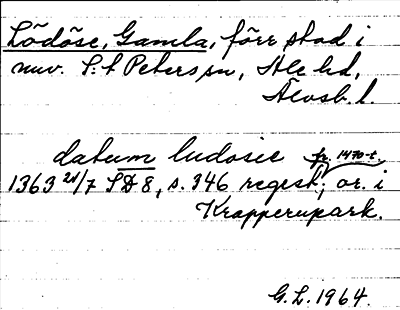 Lödöse, Gamla, förr stad i
nuv. S:t Peters sn, Ale hd,
Älvsb. l.
datum ludosie fr. 1470-t.
1363 21/7 SD 8, s. 346 regest; or. i
Krapperupark.
G.L. 1964.